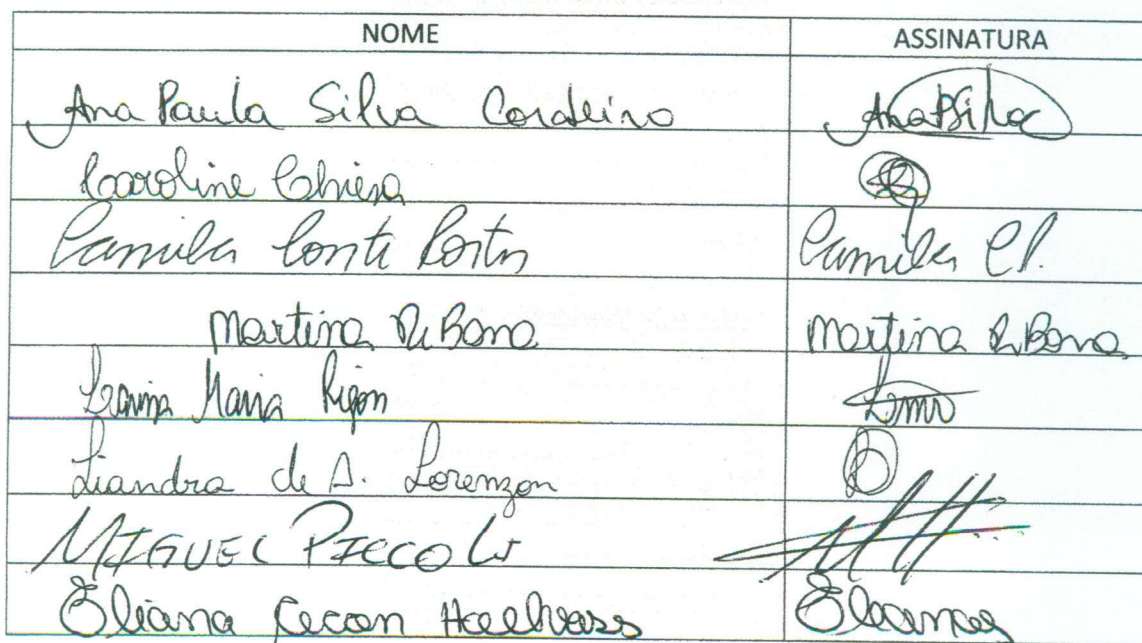 NOME ASSINATURA
Ana Paula Silva Cordeiro AnaPSilva
Caroline Chiesa
Camila Conti Camila CP.
Martina DeBona Martina DeBona
Maria Rigon
Liandra de A. Lorenzon
MIGUEL PICCOLI
Eliana Cecon Eliana